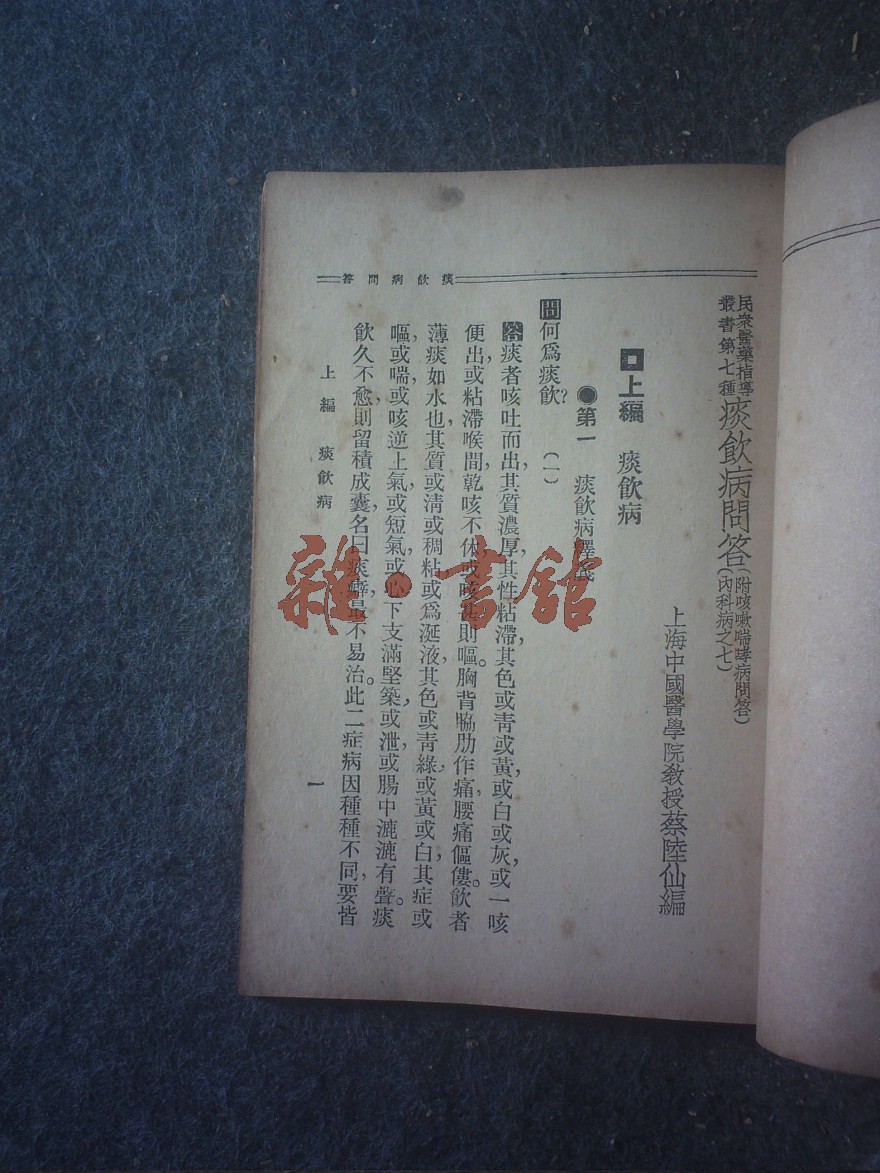 民衆醫藥指導
叢書第七種
痰飲病問答
(附咳嗽喘哮病問答)
(內科病之七)
上海中國醫學院敎授蔡陸仙編
上編 痰飲病
第一 痰飲病釋義
問何爲痰飲?(一)
答痰者咳吐而出,其質濃厚,其性粘滯,其色或靑或黃或白或灰,或一咳
便出,或粘滯喉間,乾咳不休,或咳甚則嘔。胸背脇肋作痛,腰痛傴僂。飲者
薄痰如水也,其質或淸或稠粘或爲涎液,其色或靑綠,或黃或白,其症或
嘔,或喘,或咳逆上氣,或短氣,或心下支滿堅築,或泄,或腸中漉漉有聲。痰
飲久不愈,則留積成囊,名曰痰癖,最不易治。此二症病因種種不同,要皆
痰飲病問答
上編 痰飲病
一
雜·書舘